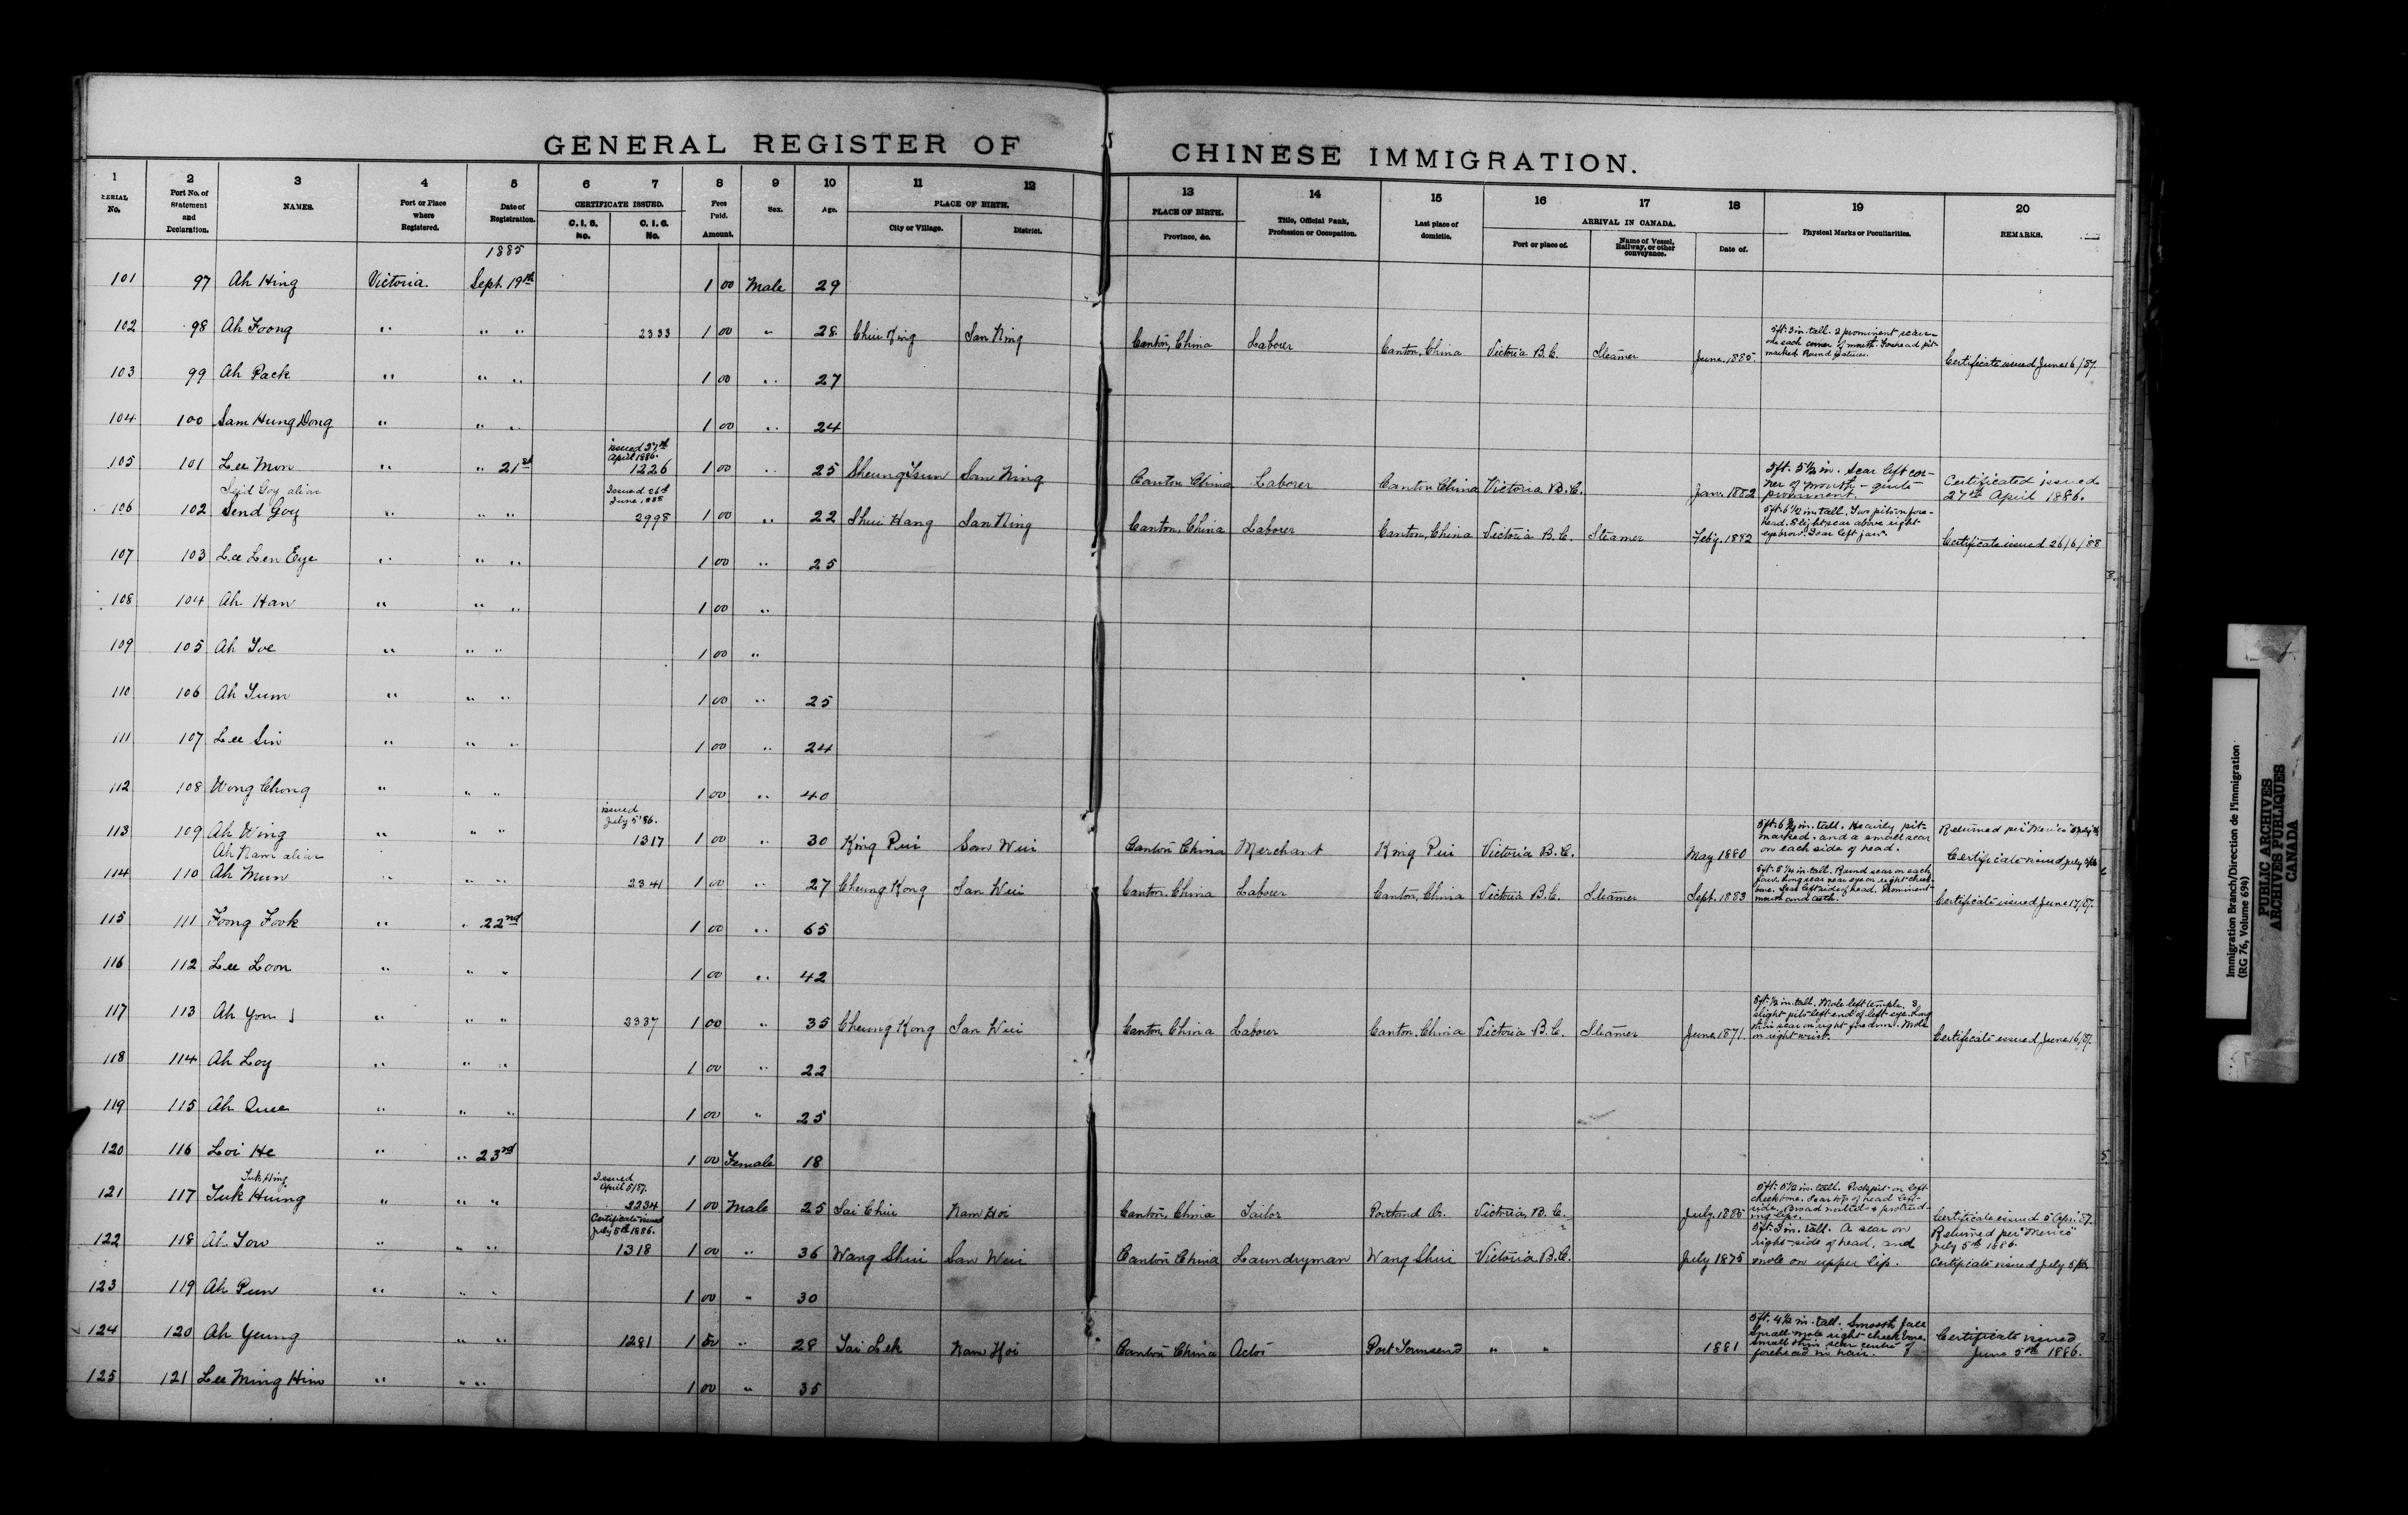 GENERAL REGISTER OF CHINESE IMMIGRATION.
1 2 3 4 5 6 7 8 9 10 11 12 13 14 15 16 17 18 19 20
SERIAL No. Port No. of Statement and Declaration. NAMES. Port or Place where Registered. Date of Registration. CERTIFICATE ISSUED. C. I. 6. No. C. I. 6. No. Fees Paid. Amount. Sex. Age. PLACE OF BIRTH. City or Village. District. PLACE OF BIRTH. Province, &c. Title, Official Rank, Profession or Occupation. Last place of domicile. ARRIVAL IN CANADA. Port or place of. Name of Vessel, Railway, or other conveyance. Date of. Physical Marks or Peculiarities. REMARKS.
1885
101 97 Ah Hing Victoria. Sept. 19th 1 00 Male 29
102 98 Ah Foong " " " 2333 1 00 " 28 Chui King San Ning Canton, China Labourer Canton, China Victoria B.C. Steamer June 1885. 5ft. 3in. tall. 2 prominent scars one each corner of mouth. Forehead pit-marked. Round features. Certificate issued June 16/87.
103 99 Ah Pack " " " 1 00 " 27
104 100 Sam Hung Dong " " " 1 00 " 24
105 101 Lee Mon " " 21st issued 27th April 1886. 1226 1 00 " 25 Sheung Tsun San Ning Canton China Laborer Canton China Victoria B.C. Jan. 1882 5ft. 5½ in. Scar left corner of mouth - quite prominent. Certificated issued 27th April 1886.
106 102 Seid Goy alias Send Goy " " " Issued 26th June, 1888 2998 1 00 " 22 Shui Hang San Ning Canton, China Laborer Canton, China Victoria B.C. Steamer Feby. 1882 5ft. 6½ in. tall. Two pits on forehead. Slight scar above right eyebrow. Scar left jaw. Certificate issued 26/6/88
107 103 Lee Len Eye " " " 1 00 " 25
108 104 Ah Han " " " 1 00 "
109 105 Ah Toe " " " 1 00 "
110 106 Ah Sum " " " 1 00 " 25
111 107 Lee Sin " " " 1 00 " 24
112 108 Wong Chong " " " 1 00 " 40
113 109 Ah Wing " " " issued July 5 '86. 1317 1 00 " 30 King Pui San Wui Canton China Merchant King Pui Victoria B.C. May 1880 5ft. 6¾ in. tall. Heavily pit-marked. and a small scar on each side of head. Returned per "Mexico" Certificate issued July
114 110 Ah Nam alias Ah Mun " " " 2341 1 00 " 27 Cheung Kong San Wui Canton, China Labourer Canton, China Victoria B.C. Steamer Sept. 1883 Round scar on each jaw. Long scar near eye on right cheek bone. Scar left side of head. Prominent mouth and teeth. Certificate issued June 17/87.
115 111 Foong Fook " " 22nd 1 00 " 65
116 112 Lee Loon " " " 1 00 " 42
117 113 Ah Yow " " " 2337 1 00 " 35 Cheung Kong San Wui Canton China Laborer Canton, China Victoria B.C. Steamer June, 1871. 5ft. ½ in. tall. Mole left temple. 3 slight pits left end of left eye. Long thin scar on right forearm. Mole on right wrist. Certificate issued June 16/87.
118 114 Ah Loy " " " 1 00 " 22
119 115 Ah Quee " " " 1 00 " 25
120 116 Loi He " " 23rd 1 00 Female 18
121 117 Tuk Hing Tuk Huing " " " Issued April 5/87. 2234 1 00 Male 25 Sai Chiu Nam Hoi Canton, China Tailor Portland Or. Victoria, B.C. July, 1885 5ft. 5½ in. tall. Pockpit on left cheek bone. Scar top of head left side. Broad nostrils & protruding lips. Certificate issued 5 Apr. '87.
122 118 Ah Tow " " " Certificate issued July 5th 1886. 1318 1 00 " 36 Wang Shui San Wui Canton China Laundryman Wang Shui Victoria B.C. July 1875 5ft. 3 in. tall. A scar on right side of head, and mole on upper lip. Returned per "Mexico" July 5th 1886. Certificate issued July 5/86
123 119 Ah Pun " " " 1 00 " 30
124 120 Ah Yeung " " 1281 1 50 " 28 Tai Lek Nam Hoi Canton China Actor Port Townsend " " 1881 5ft. 4½ in. tall. Smooth face Small mole right cheek bone. Small thin scar centre of forehead in hair. Certificate issued June 5th 1886.
125 121 Lee Ming Him " " " 1 00 " 35
Immigration Branch/Direction de l'immigration
(RG 76, Volume 694)
PUBLIC ARCHIVES
ARCHIVES PUBLIQUES
CANADA